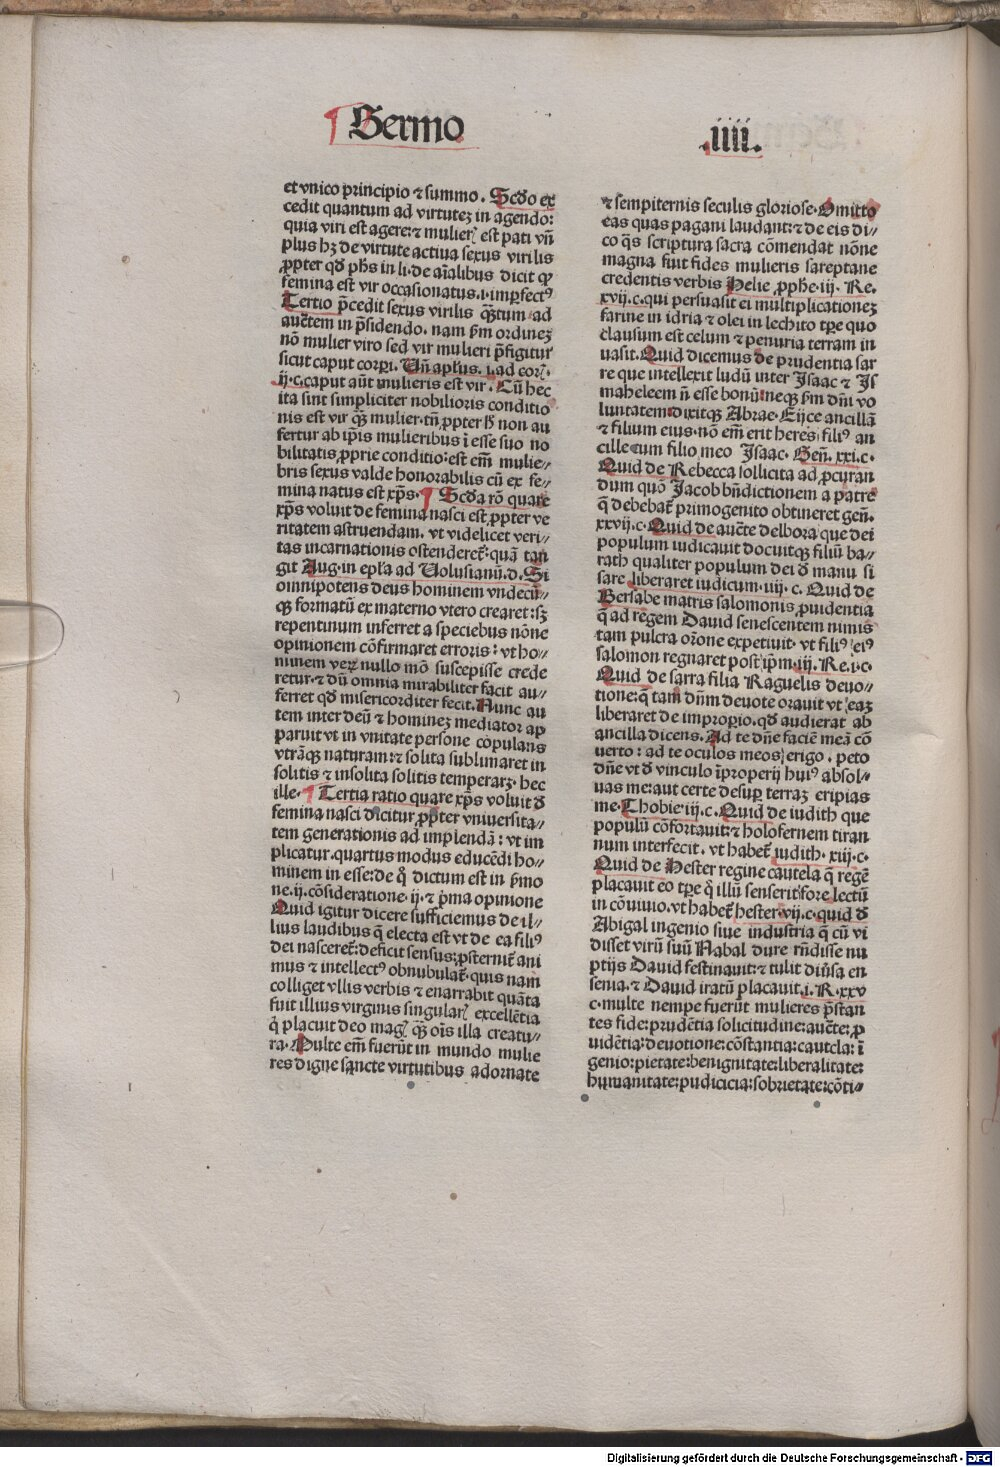 ¶ Sermo
.iiii.
et vnico principio ⁊ summo. Scd̄o ex
cedit quantum ad virtutez in agendo:
quia viri est agere: ⁊ mulieꝝ est pati vñ
plus hꝫ de virtute actiua sexus virilis
ꝓpter qd̄ ph̄s in li. de aīalibus dicit ꝙ
femina est vir occasionatus. i. imperfectꝰ
Tertio p̄cedit sexus virilis qȝtum ad
auc̄tem in p̄sidendo. nam ẜm ordinez
nō mulier viro sed vir mulieri p̄figitur
sicut caput corpri. Vñ apl̄us. i. ad coꝝ.
ij. c. caput aūt mulieris est vir. Cū hec
ita sint simpliciter nobilioris conditio
nis est vir qȝ mulier. tñ ꝓpter h̄ non au
fertur ab ip̄is mulieribus ī esse suo no
bilitatis ꝓprie conditio: est em̄ mulie⸗
bris sexus valde honorabilis cū ex fe⸗
mina natus est xp̄s. ¶ Scd̄a rō quare
xp̄s voluit de femina nasci est ꝓpter ve
ritatem astruendam. vt videlicet veri⸗
tas incarnationis ostenderet̄: quā tan
git Aug. in epl̄a ad Volusianū. d. Si
omnipotens deus hominem vndecū⸗
qꝫ formatū ex materno vtero crearet: sꝫ
repentinum inferret a speciebus nōne
opinionem cōfirmaret erroris: vt ho⸗
minem veꝝ nullo mō suscepisse crede
retur. ⁊ dū omnia mirabiliter facit au⸗
ferret qd̄ misericorditer fecit. Nunc au
tem inter deū ⁊ hominez mediator ap
paruit vt in vnitate persone copulans
vtrāqꝫ naturam: ⁊ solita sublimaret in
solitis ⁊ insolita solitis temperaꝝ. hec
ille. ¶ Tertia ratio quare xp̄s voluit d̄
femina nasci dicitur ꝓpter vniuersita⸗
tem generationis ad implendā: vt im
plicatur. quartus modus educēdi ho⸗
minem in esse: de q̄ dictum est in p̄mo
ne. ij. cōsideratione. ij. ⁊ p̄ma opinione
Quid igitur dicere sufficiemus de il⸗
lius laudibus q̄ electa est vt de ea filiꝰ
dei nasceret̄: deficit sensus; ꝓsternit̄ ani
mus ⁊ intellectꝰ obnubulat̄. quis nam
colliget vllis verbis ⁊ enarrabit quāta
fuit illius virginis singulaꝝ excellētia
q̄ placuit deo magꝭ qȝ oīs illa creatu⸗
ra. Multe em̄ fuerūt in mundo mulie
res digne sancte virtutibus adornate
⁊ sempiternis seculis gloriose. Omitto
eas quas pagani laudant: ⁊ de eis di⸗
co q̄s scriptura sacra cōmendat nōne
magna fuit fides mulieris sareptane
credentis verbis Helie ꝓphe. iij. Re.
xvij. c. qui persuasit ei multiplicationez
farine in idria ⁊ olei in lechito tp̄e quo
clausum est celum ⁊ penuria terram in
uasit. Quid dicemus de prudentia sar
re que intellexit ludū inter Isaac ⁊ Is
maheleem ñ esse bonū: neqꝫ ẜm dn̄i vo
luntatem: dixitqꝫ Abrae. Eijce ancillā
⁊ filium eius. nō em̄ erit heres filiꝰ an
cille cum filio meo Isaac. Geñ. xxi. c.
Quid de Rebecca sollicita ad ꝓcuran
dum quō Jacob bñdictionem a patre
q̄ debebat̄ primogenito obtineret geñ.
xxvij. c. Quid de auc̄te delbora que dei
populum iudicauit docuitqꝫ filiū ba⸗
rath qualiter populum dei d̄ manu si
sare liberaret iudicum. iiij. c. Quid de
Bersabe matris salomonis ꝓuidentia
q̄ ad regem Dauid senescentem nimis
tam pulcra orōne expetiuit. vt filiꝰ eiꝰ
salomon regnaret post ip̄m. iij. Re. i. c.
Quid de sarra filia Raguelis deuo⸗
tione: q̄ tam dūm deuote orauit vt eaz
liberaret de improprio. qd̄ audierat ab
ancilla dicens. Ad te dñe faciē meā cō
uerto: ad te oculos meos erigo. peto
dñe vt d̄ vinculo īproperij huiꝰ absol⸗
uas me: aut certe desup terraz eripias
me. Thobie iij. c. Quid de iudith que
populū cōfortauit: ⁊ holofernem tiran
num interfecit. vt habet̄ iudith. xiij. c.
Quid de Hester regine cautela q̄ regē
placauit eo tp̄e q̄ illū senserit fore lectū
in cōuiuio. vt habet̄ hester. vij. c. quid d̄
Abigal ingenio siue industria q̄ cū vi
disset virū suū Nabal dure rñdisse nu
ptijs Dauid festinauit: ⁊ tulit diu̅sa en
senia. ⁊ Dauid iratū placauit. i. R. xxv
c. multe nempe fuerūt mulieres p̄stan
tes fide: prudētia solicitudine: auc̄te: ꝓ
uidētia: deuotione: cōstantia: cautela: ī
genio: pietate: benignitate: liberalitate:
humanitate: pudicicia: sobrietate: cōti⸗
Digitalisierung gefördert durch die Deutsche Forschungsgemeinschaft - DFG